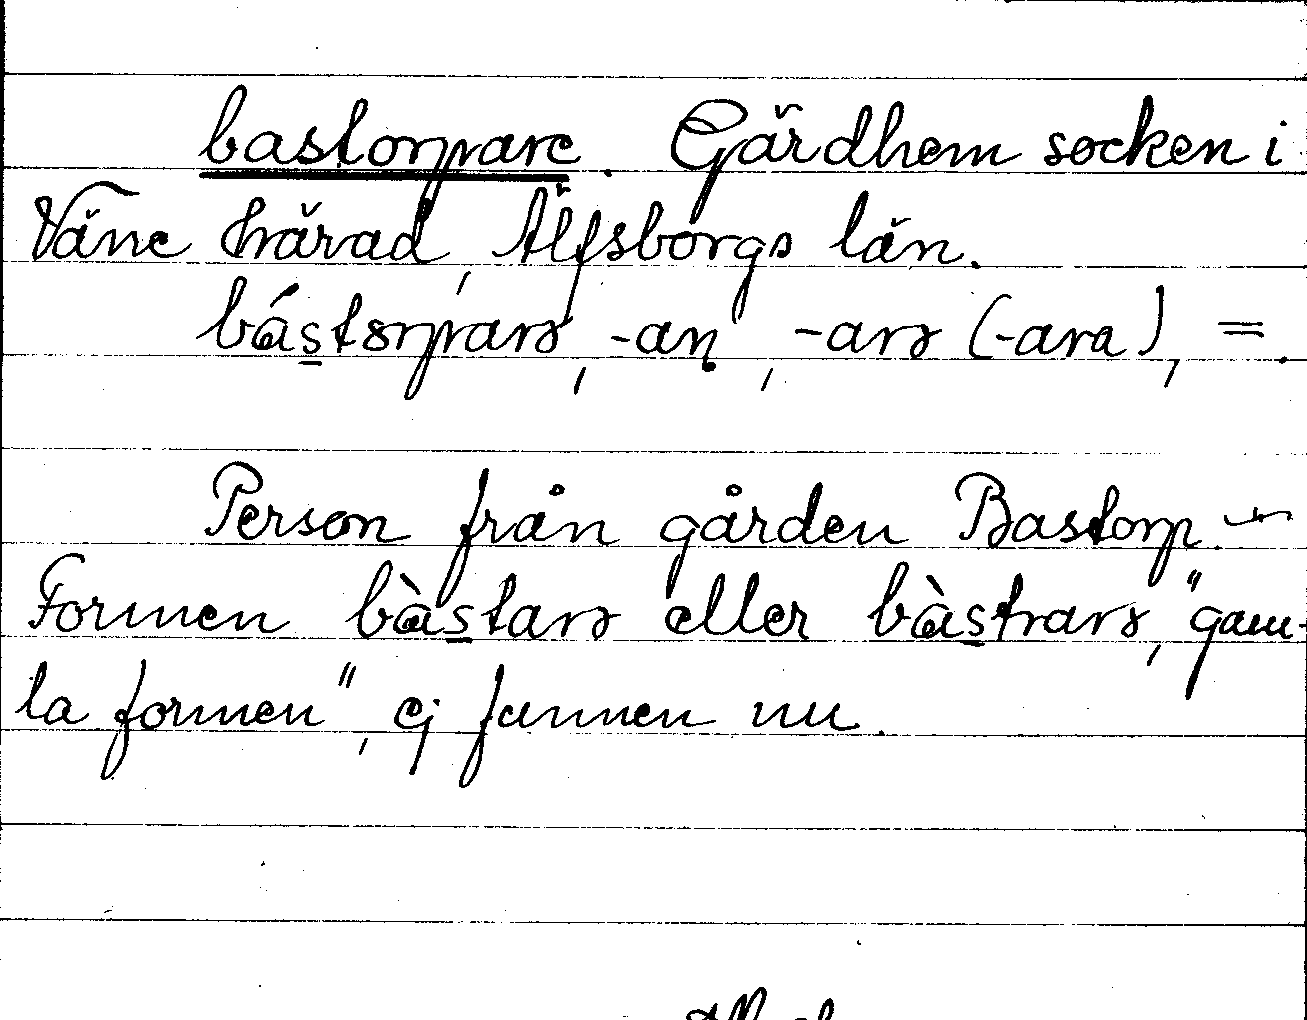 bastorpare. Gärdhem socken i
Väne härad, Älfsborgs län.
bástorparə, -an̥, -arə (-ara), =.
Person från gården Bastorp. –
Formen bàs̱tarə eller bàs̱trarə, "gam-
la formen", ej funnen nu.